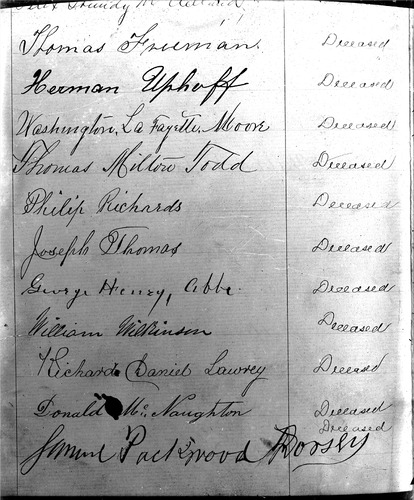 Thomas Freeman. Deceased
Herman Uphoff Deceased
Washington, La Fayette, Moore Deceased
Thomas Milton Todd Deceased
Philip Richards Deceased
Joseph Thomas Deceased
George Henry, Abbe. Deceased
William Wilkinson Deceased
Richard Daniel Lawrey Deceased
Donald McNaughton Deceased
Samuel Packwood Dorsey Deceased